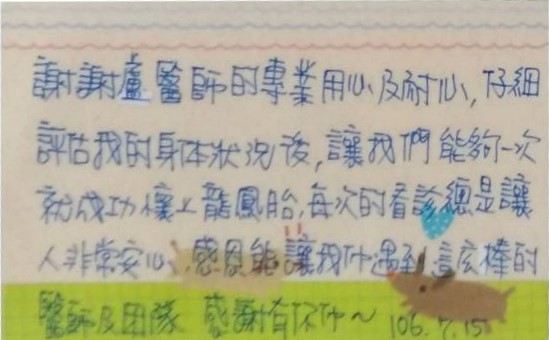 謝謝盧醫師的專業用心及耐心,仔細
評估我的身体狀況後,讓我們能夠一次
就成功懷上龍鳳胎,每次的看診總是讓
人非常安心,感恩能讓我们遇到這么棒的
醫師及团隊 感謝有你们~ 106.7.15